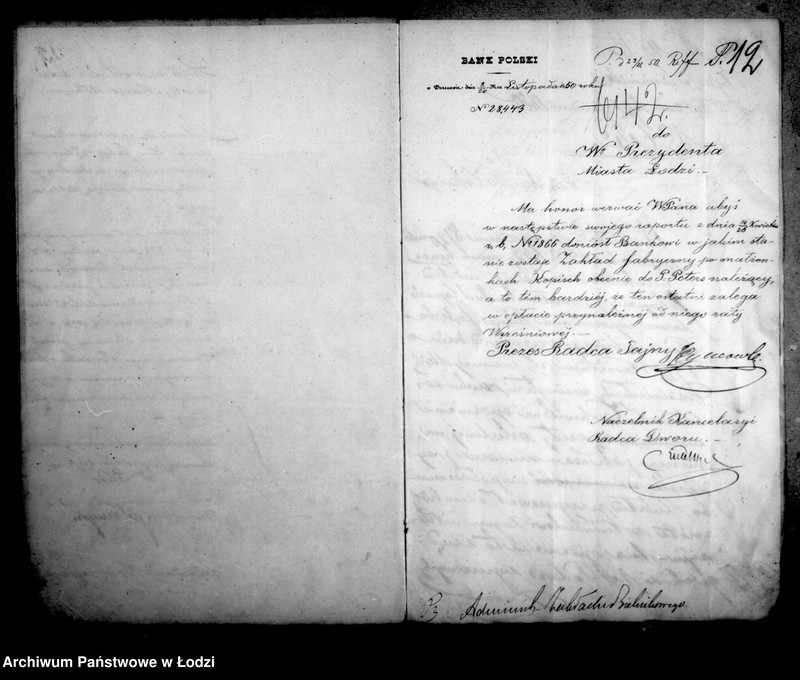 BANK POLSKI
P. d 23/11 50 Roff F. 12
w Warszawie dnia 8/20 Mca Listopada 1850 roku
Nº 28,443
6142.
do
W. Prezydenta
Miasta Łodzi. —
Ma honor wezwać WPana abyś
w następstwie swojego raportu z dnia Kwietnia
r. b. Nº 1866 doniósł Bankowi w jakim sta-
nie zostaje Zakład fabryczny po małżon-
kach Kopisch obecnie do P. Peters należący,
a to tim bardziéj, że ten ostatni zalega
w opłacie przynależnéj od niego raty
Wrześniowéj. —
Prezes Radca Tajny
Naczelnik Kancelaryi
Radca Dworu. —
Zakładu Bielnikowego
Archiwum Państwowe w Łodzi